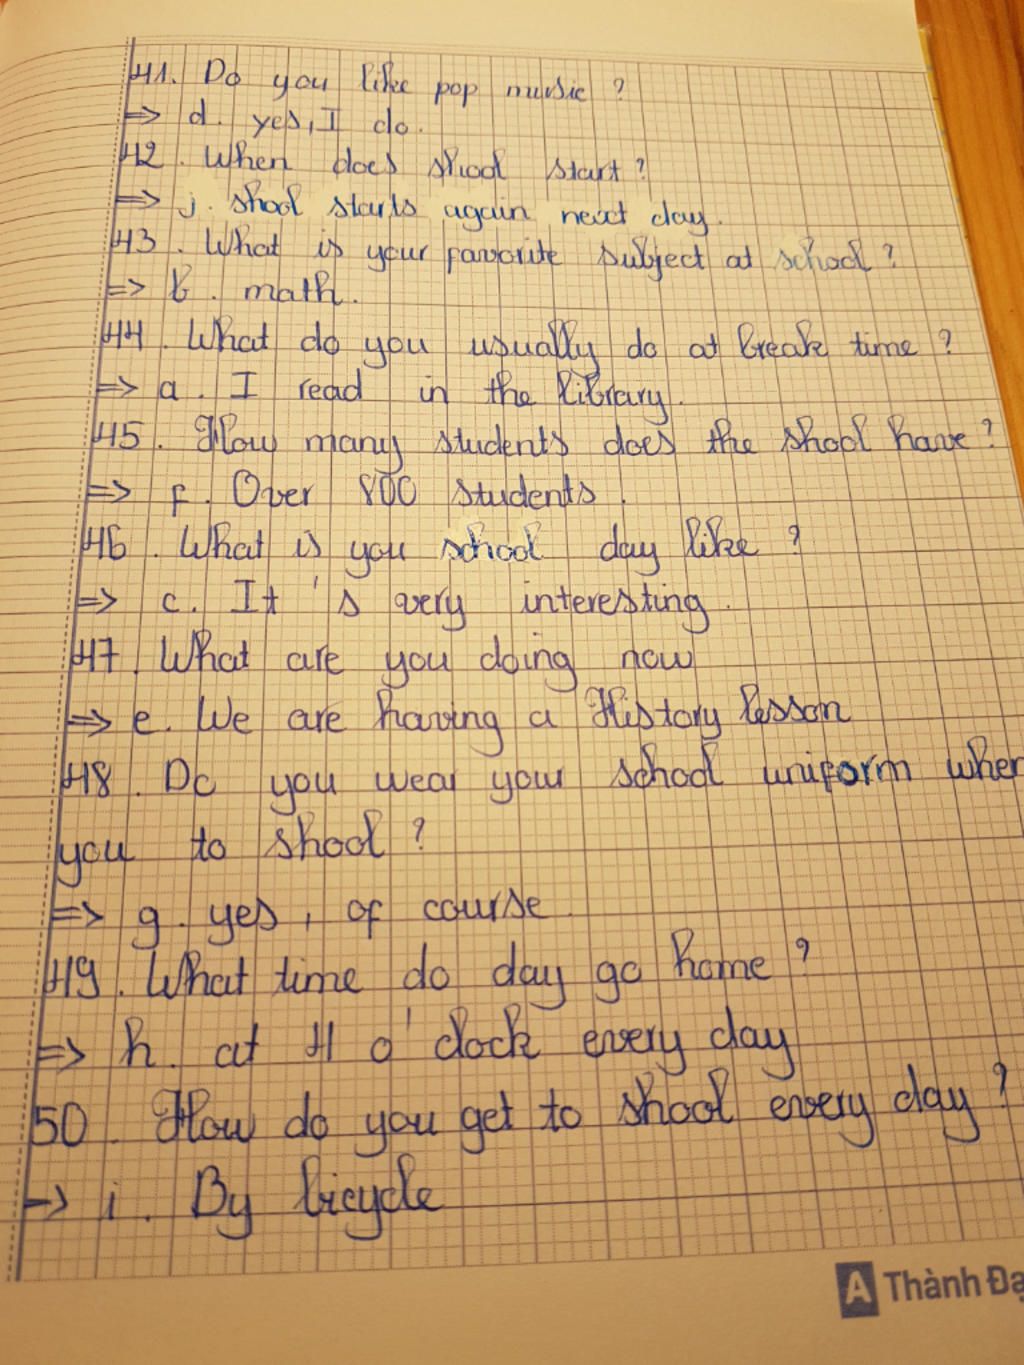 41. Do you like pop music ?
=> d. yes, I do.
42. When does shool start?
=> j. shool starts again next day.
43. What is your favorite subject at school ?
=> b. math.
44. What do you usually do at break time ?
=> a. I read in the library.
45. How many students does the shool have ?
=> f. Over 800 students.
46. What is you school day like ?
=> c. It 's very interesting.
47. What are you doing now
=> e. We are having a History lesson
48. Do you wear your school uniform when
you to shool ?
=> g. yes, of course
49. What time do day go home ?
=> h. at 4 o'clock every day
50. How do you get to shool every day ?
=> i. By bicycle
A Thành Đạ